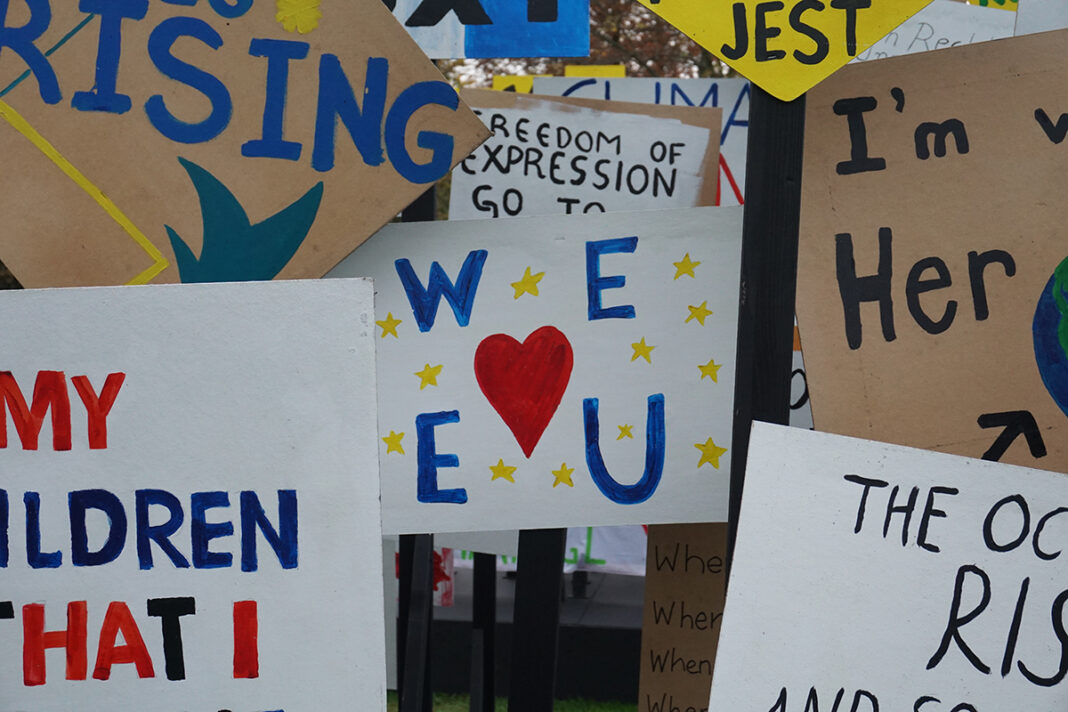 RISING
JEST
CLIMA
FREEDOM OF
EXPRESSION
GO TO
I'm
Her
WE
EU
MY
ILDREN
THAT I
THE OC
RIS
AND SO
Whe
Wher
When
Wher